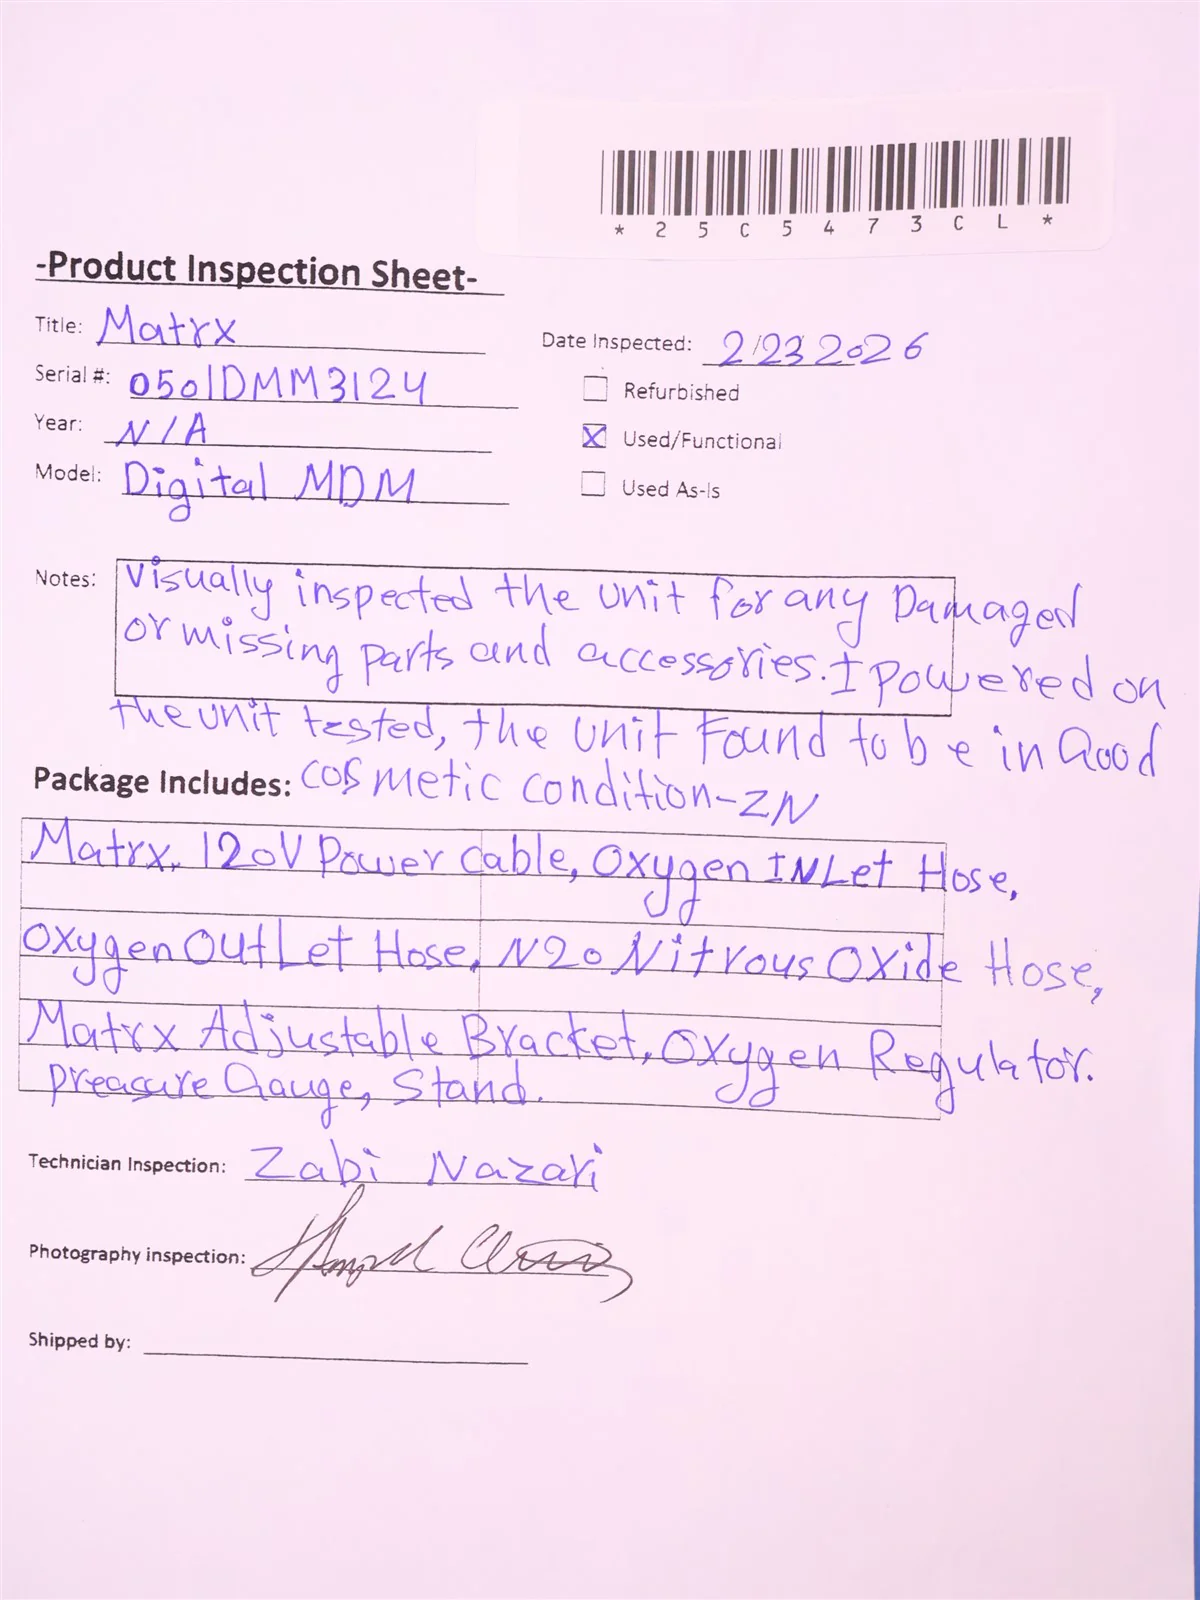 * 2 5 C 5 4 7 3 C L *
-Product Inspection Sheet-
Title: Matrx
Date Inspected: 2/23 2026
Serial #: 0501DMM3124
Refurbished
Year: N/A
X Used/Functional
Model: Digital MDM
Used As-Is
Notes: Visually inspected the unit for any Damaged
or missing parts and accessories. I powered on
the unit tested, the unit Found to be in Good
Package Includes: cosmetic condition-ZN
Matrx, 120V Power cable, Oxygen INLet Hose,
Oxygen OutLet Hose, N2o Nitrous Oxide Hose,
Matrx Adjustable Bracket, Oxygen Regulator.
preasure Gauge, Stand.
Technician Inspection: Zabi Nazari
Photography inspection:
Shipped by: